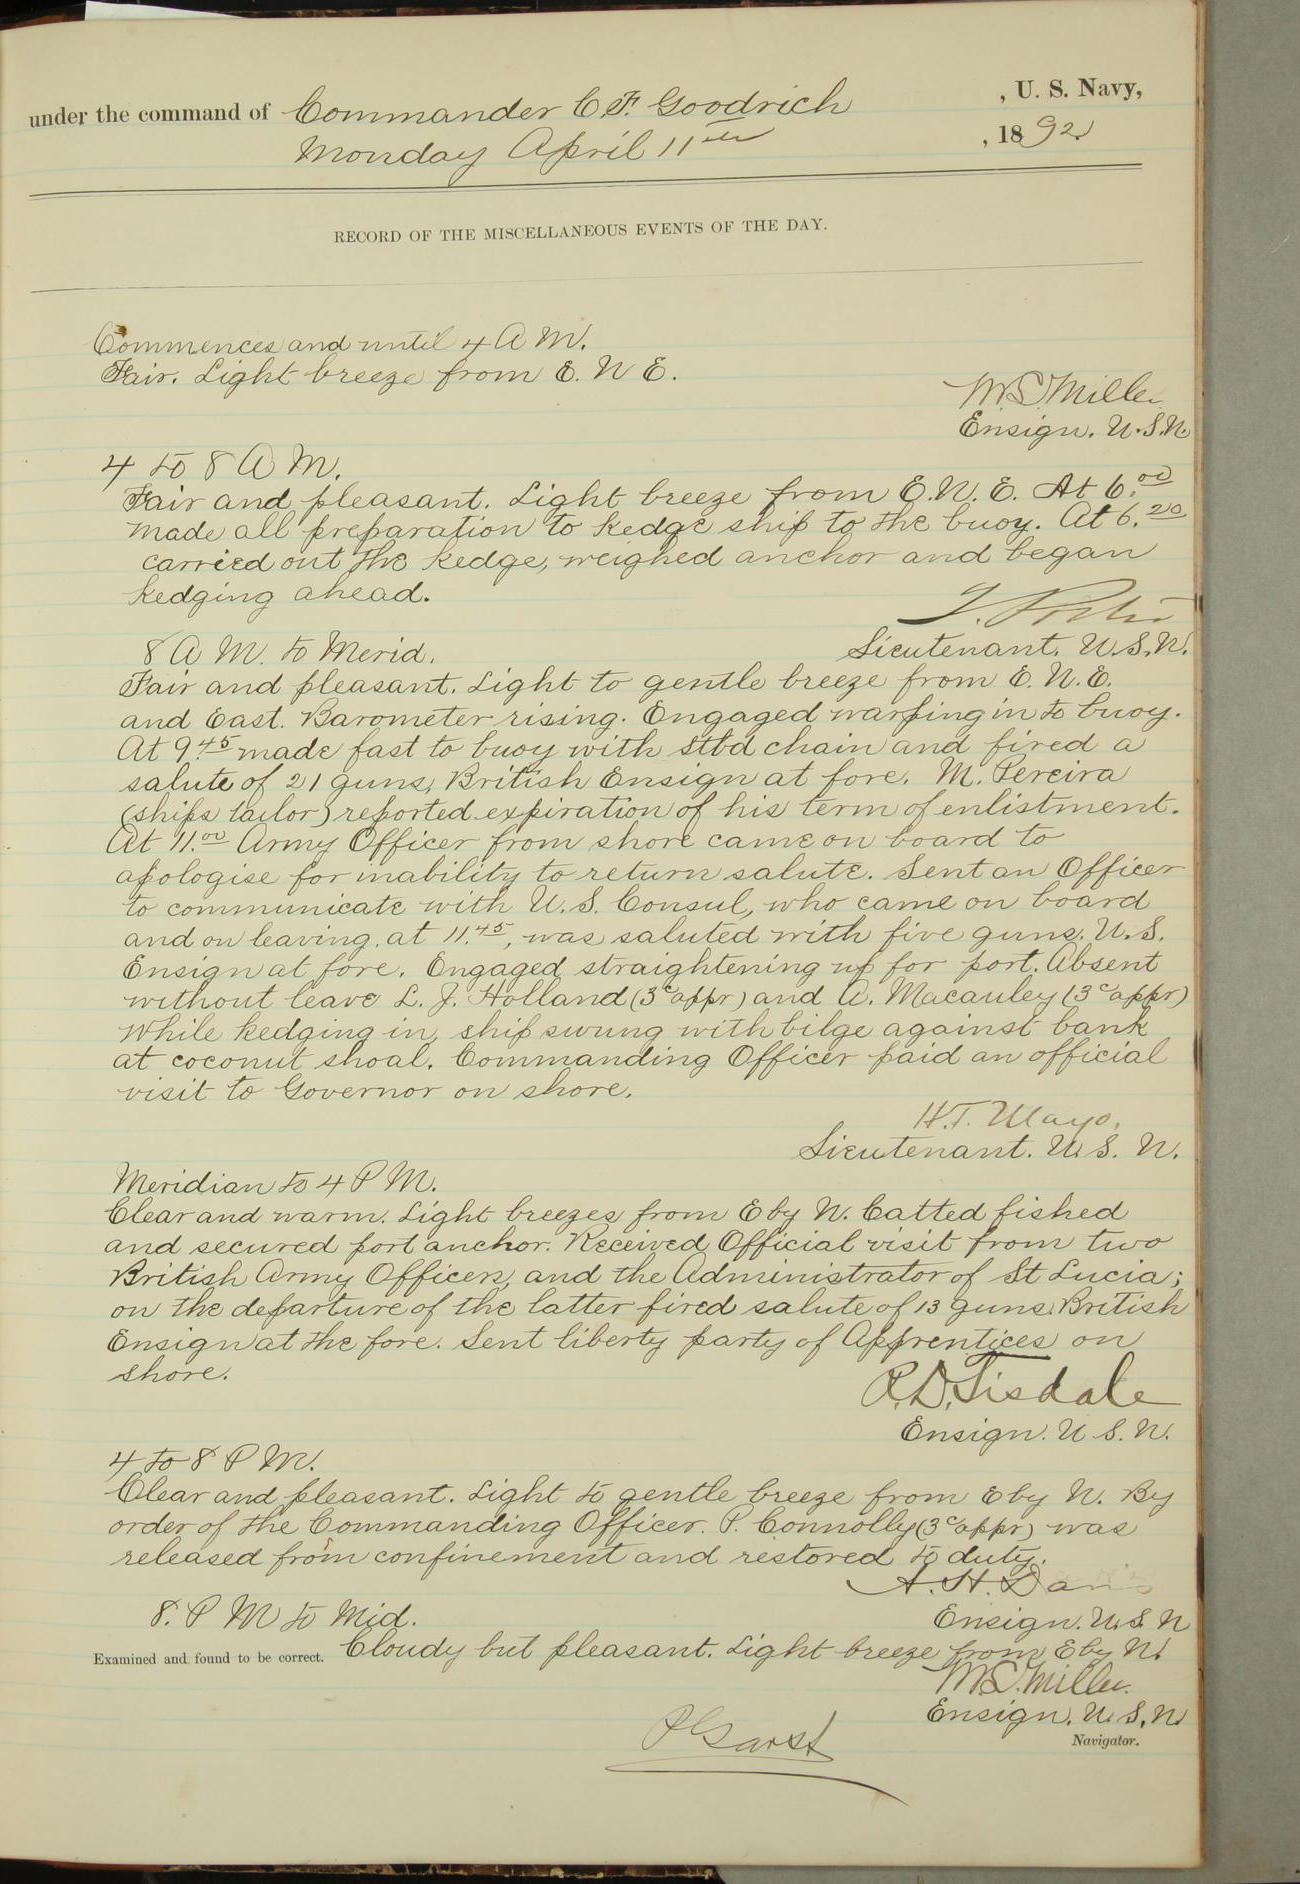 under the command of Commander C.F. Goodrich , U. S. Navy,
Monday April 11th , 1892
RECORD OF THE MISCELLANEOUS EVENTS OF THE DAY.
Commences and until 4 A M.
Fair. Light breeze from E. N E.
M.L. Miller
Ensign. U.S.N.
4 to 8 A M.
Fair and pleasant. Light breeze from E.N.E. At 6.00
made all preparation to kedge ship to the buoy. At 6.20
carried out the kedge, weighed anchor and began
kedging ahead.
T. Porter
Lieutenant. U.S.N.
8 A M. to Merid.
Fair and pleasant. Light to gentle breeze from E. N. E.
and East. Barometer rising. Engaged warping in to buoy.
At 9.45 made fast to buoy with stbd chain and fired a
salute of 21 guns, British Ensign at fore. M. Pereira
(ships tailor) reported expiration of his term of enlistment.
At 11.00 Army Officer from shore came on board to
apologise for inability to return salute. Sent an Officer
to communicate with U.S. Consul, who came on board
and on leaving, at 11.45, was saluted with five guns. U.S.
Ensign at fore. Engaged straightening up for port. Absent
without leave L. J. Holland (3c appr) and A. Macauley (3c appr)
While kedging in, ship swung with bilge against bank
at coconut shoal. Commanding Officer paid an official
visit to Governor on shore.
H.T. Mayo,
Lieutenant. U.S. N.
Meridian to 4 P M.
Clear and warm. Light breezes from E by N. Catted fished
and secured port anchor. Received Official visit from two
British Army Officers, and the Administrator of St Lucia;
on the departure of the latter fired salute of 13 guns. British
Ensign at the fore. Sent liberty party of Apprentices on
shore.
R.D. Tisdale
Ensign. U.S.N.
4 to 8 P M.
Clear and pleasant. Light to gentle breeze from E by N. By
order of the Commanding Officer. P. Connolly (3c appr) was
released from confinement and restored to duty.
A. H. Davis
8. P M to Mid.
Ensign. U.S.N
Examined and found to be correct. Cloudy but pleasant. Light breeze from E by N.
M.L. Miller.
Ensign. U.S.N.
P Garst
Navigator.